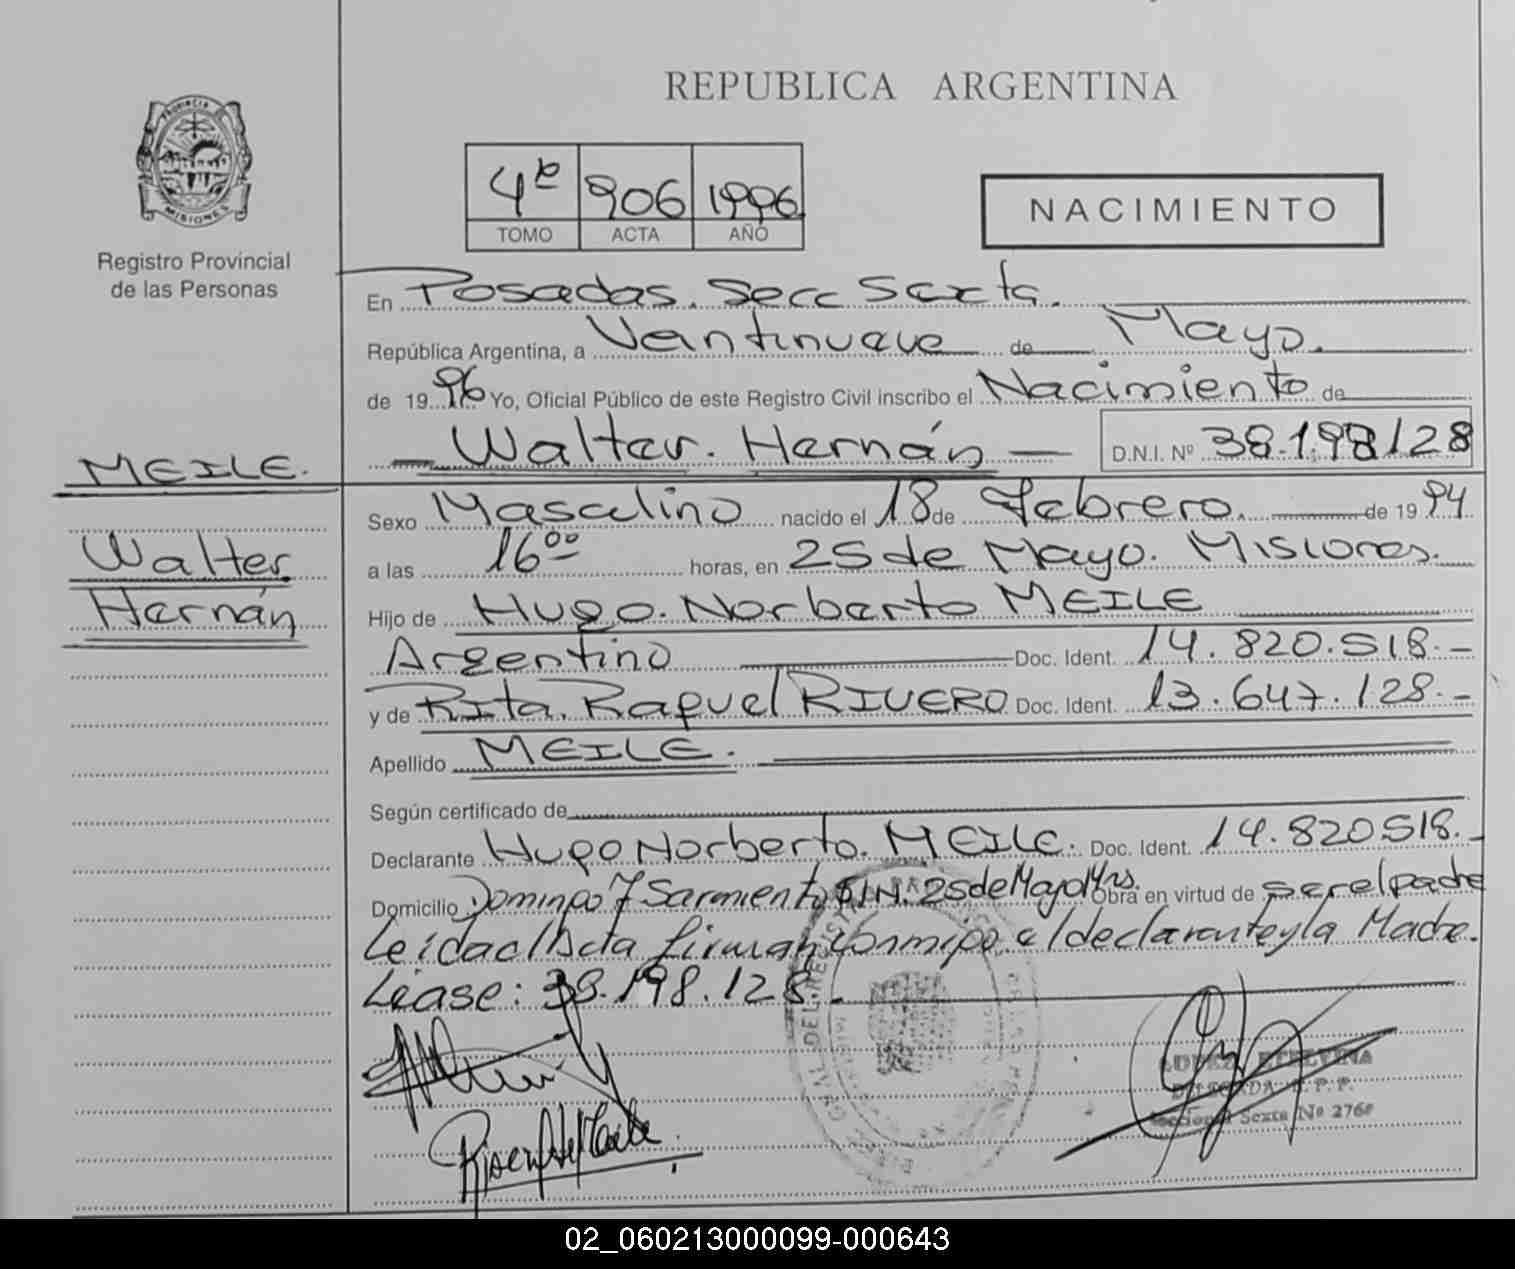 REPUBLICA ARGENTINA
PROVINCIA
MISIONES
Registro Provincial
de las Personas
4º 906 1996
TOMO ACTA AÑO
NACIMIENTO
En Posadas. Secc Sexta.
República Argentina, a Veintinueve de Mayo.
de 1996 Yo, Oficial Público de este Registro Civil inscribo el Nacimiento de
Walter. Hernán D.N.I. Nº 38.198128
MEILE.
Walter
Hernán
Sexo Masculino nacido el 18 de Febrero. de 1994
a las 16⁰⁰ horas, en 25 de Mayo. Misiones.
Hijo de Hugo. Norberto MEILE
Argentino Doc. Ident. 14.820.518.-
y de Rita. Raquel RIVERO Doc. Ident. 13.647.128.-
Apellido MEILE.
Según certificado de
Declarante Hugo Norberto. MEILE. Doc. Ident. 14.820518.-
Domicilio Domingo F Sarmiento S/N. 25 de Mayo Mns. Obra en virtud de ser el padre
Leida el Acta firman conmigo el declarante y la Madre.
Léase: 38.198.128.-
LOPEZ ETELVINA
DELEGADA R. P. P.
Seccional Sexta Nº 276
02_060213000099-000643